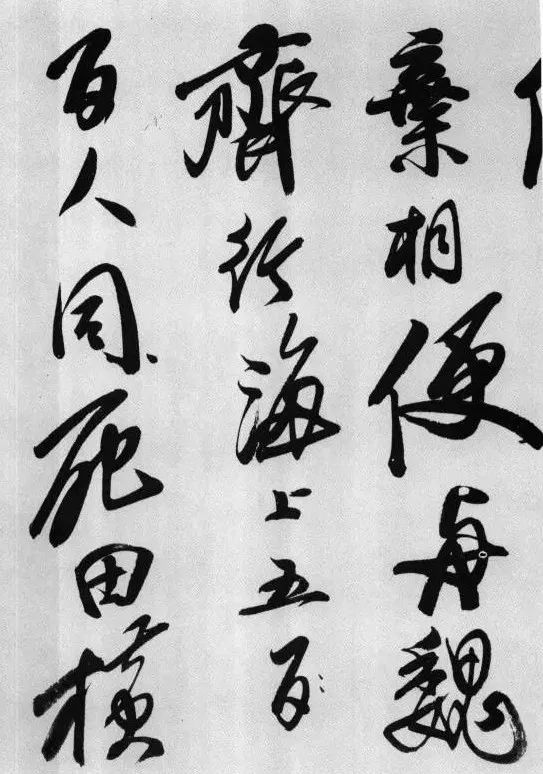 棄相便與魏
齊行海上五百
百人同死田橫